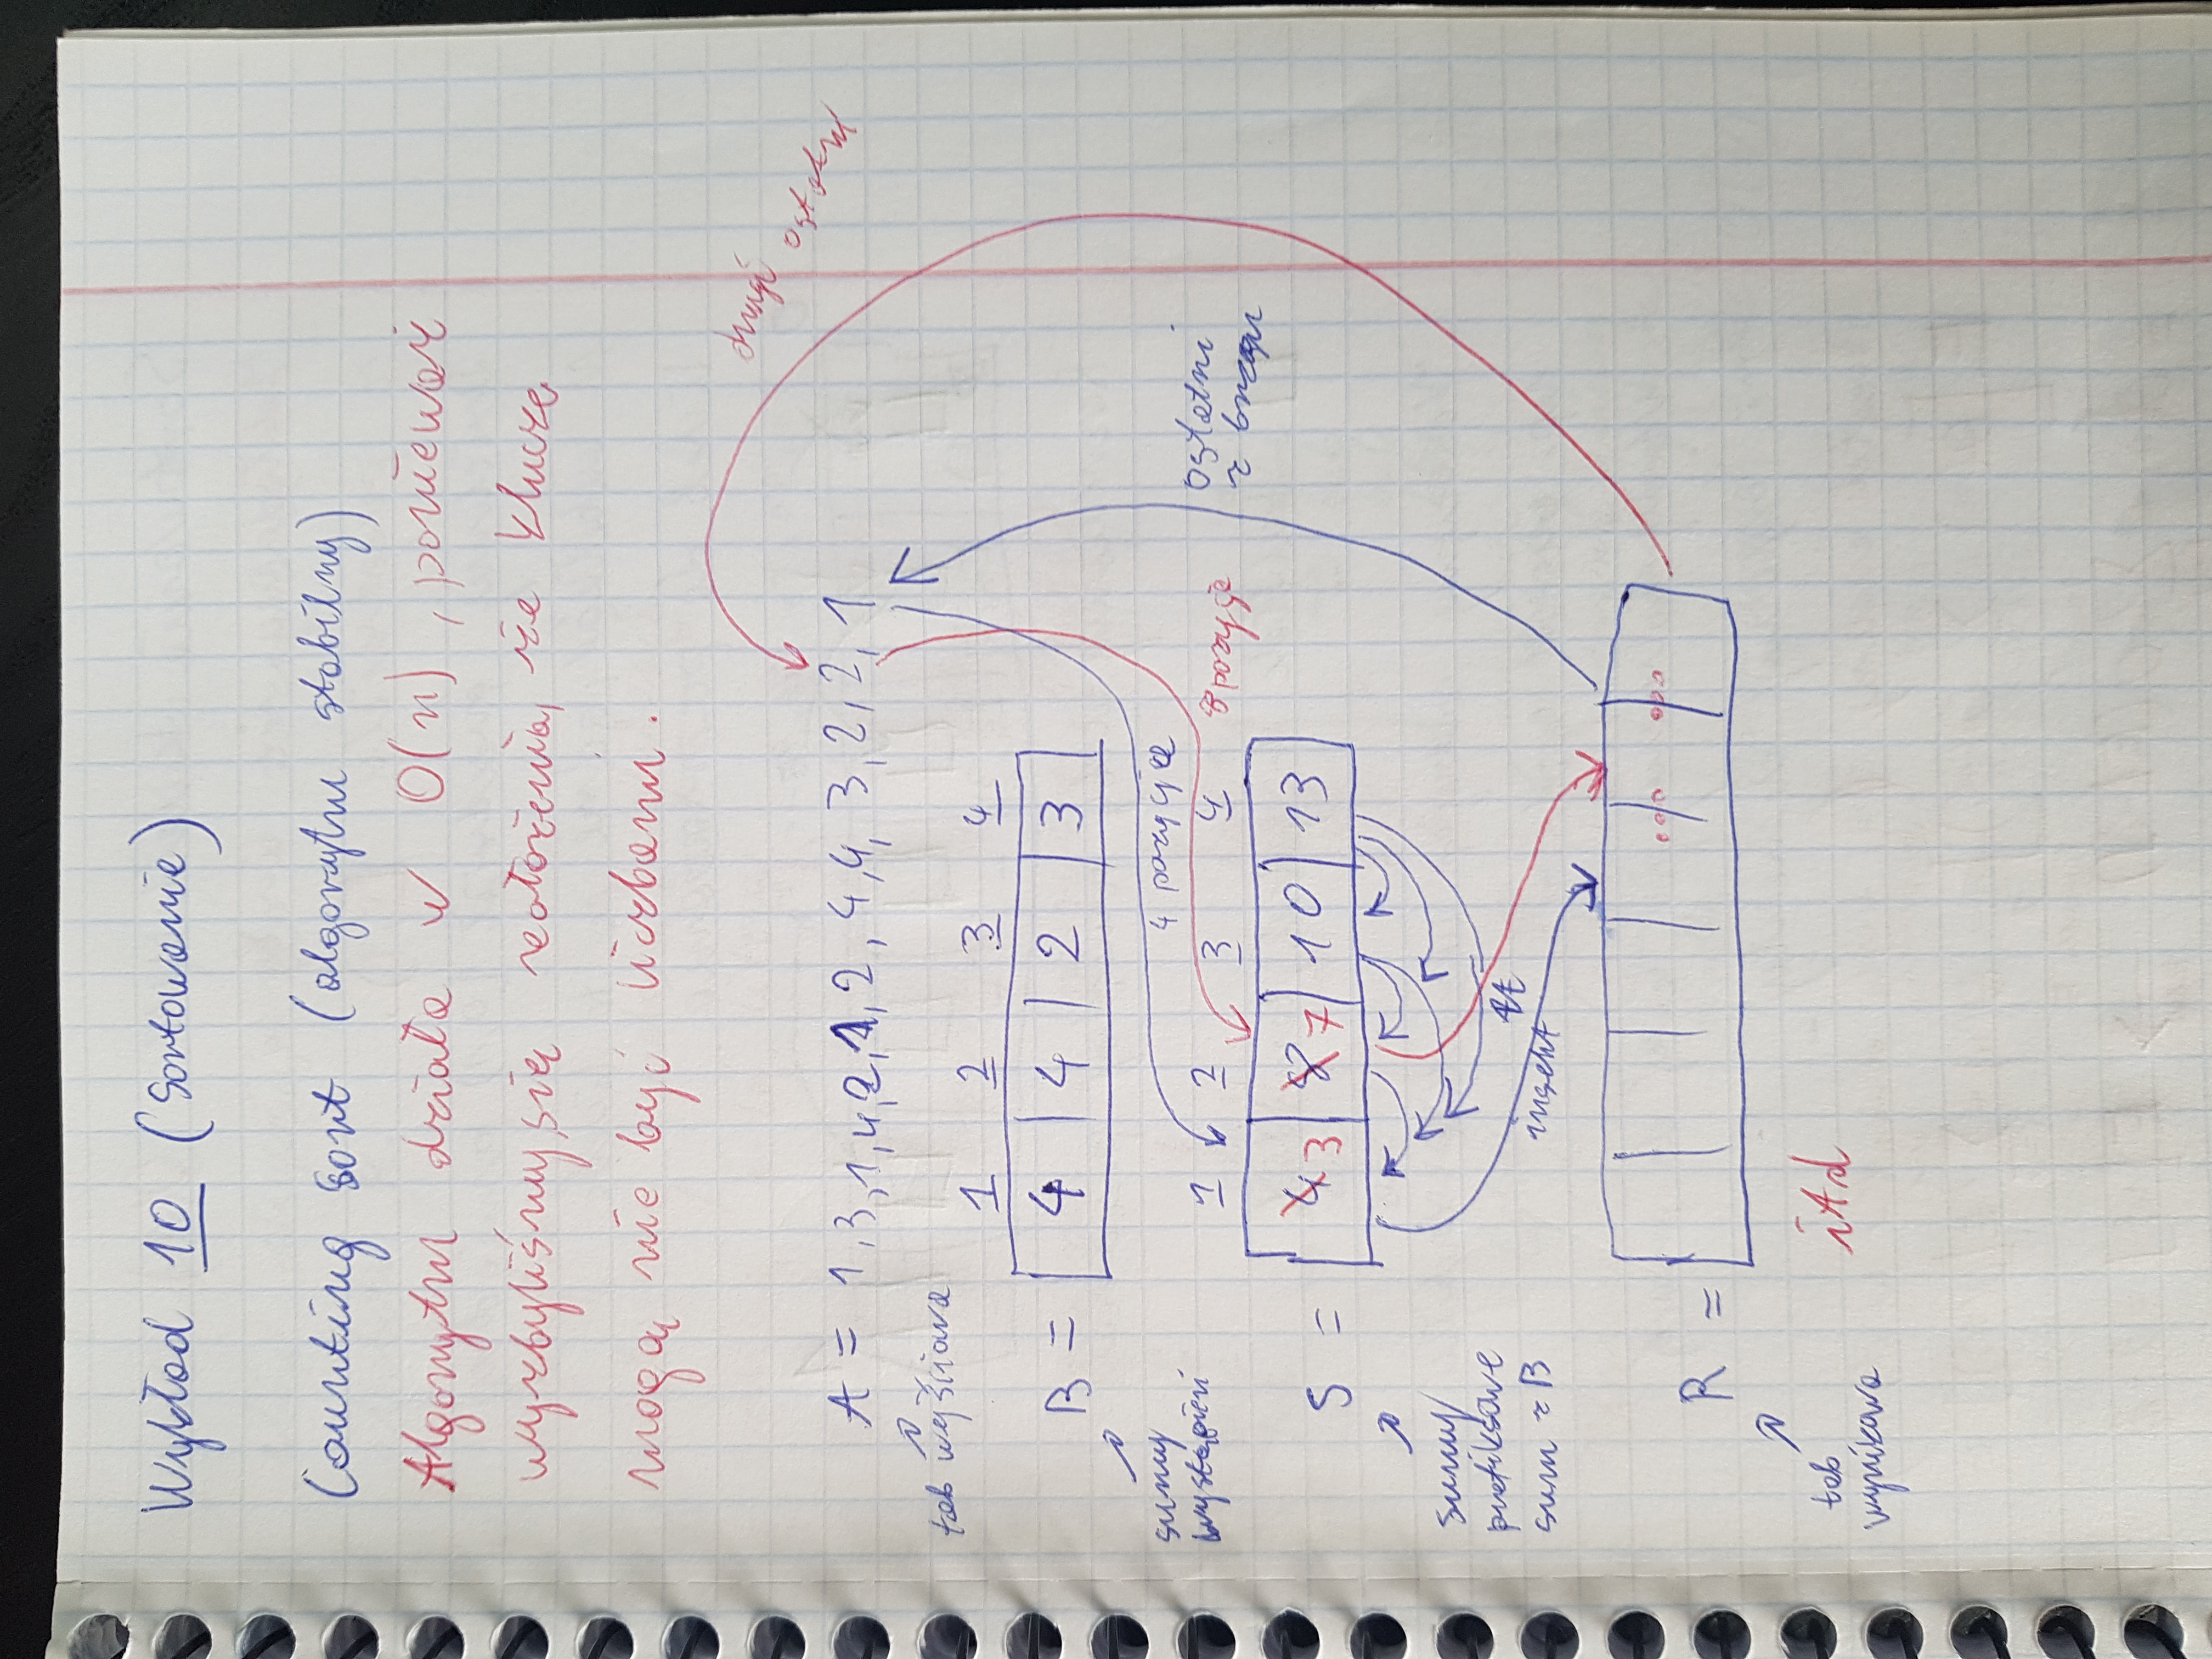 Wykład 10 (Sortowanie)
Counting sort (algorytm stabilny)
Algorytm działa w O(n), ponieważ
wyzbyliśmy się założenia, że klucze
mogą nie być liczbami.
drugi ostatni
A = 1,3,1,4,2,1,2,4,4,3,2,2,1
tab wyjściowa
1 2 3 4
B = 4 4 2 3
sumy
wystąpień
4 pozycja
8 pozycja
ostatni
z brzegu
1 2 3 4
S = 4 3 8 7 10 13
sumy
prefiksowe
sum z B
insert
R =
... ...
tab
wynikowa
itd